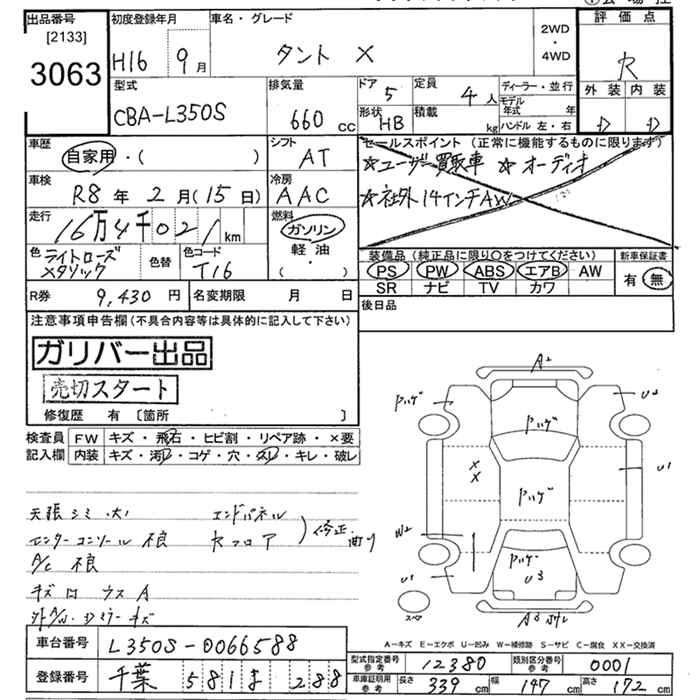 出品番号
[2133]
3063
初度登録年月
H16 9月
車名・グレード
タント X
2WD
・
4WD
評価点
R
型式
CBA-L350S
排気量
660 cc
ドア 5
形状 HB
定員 4人
積載 kg
ディーラー・並行
モデル年式 年
ハンドル 左・右
外装 内装
D D
車歴
自家用・( )
シフト
AT
セールスポイント (正常に機能するものに限ります)
☆ユーザー買取車 ☆オーディオ
☆社外14インチAW
車検
R8年 2月(15日)
冷房
AAC
走行
16万4千021km
燃料
ガソリン
軽油
・( )
色 ライトローズメタリック
色替
色コード T16
装備品 (純正品に限り○をつけてください)
PS PW ABS エアB AW
SR ナビ TV カワ
新車保証書
有・無
R券 9,430円
名変期限 月 日
後日品
注意事項申告欄(不具合内容等は具体的に記入して下さい)
ガリバー出品
売切スタート
修復歴 有 〔箇所 〕
検査員 FW キズ・飛石・ヒビ割・リペア跡・×要
記入欄 内装 キズ・汚レ・コゲ・穴・スレ・キレ・破レ
天張シミ 大
エンドパネル
センターコンソール 不良
修正
曲り
A/C 不良
キズ
A2
ハゲ
U2
ハゲ
XX
U1
ハゲ
W2
ハゲ
U1
U3
スペア
A3
A-キズ E-エクボ U-凹み W-補修跡 S-サビ C-腐食 XX-交換済
車台番号 L350S-0066588
登録番号 千葉 581 ま 288
型式指定番号 参考 12380
類別区分番号 参考 0001
車庫証明用 参考 長さ 339cm 幅 147cm 高さ 172cm